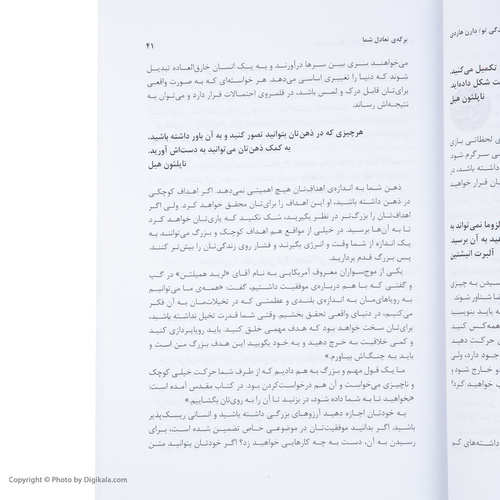 برگه‌ی تعادل شما
۴۱
می‌خواهند سری بین سرها درآورند و به یک انسان خارق‌العاده تبدیل
شوند که دنیا را تغییری اساسی می‌دهد. هر خواسته‌ای که به صورت واقعی
برای‌تان قابل درک و لمس باشد، در قلمروی احتمالات قرار دارد و می‌توان به
نتیجه‌اش رساند.
هرچیزی که در ذهن‌تان بتوانید تصور کنید و به آن باور داشته باشید،
به کمک ذهن‌تان می‌توانید به دست‌اش آورید.
ناپلئون هیل
ذهن شما به اندازه‌ی اهداف‌تان هیچ اهمیتی نمی‌دهد. اگر اهداف کوچکی
در ذهن داشته باشید، او این اهداف را برای‌تان محقق خواهد کرد. ولی اگر
اهداف‌تان را بزرگ‌تر در نظر بگیرید، شک نکنید که یاری‌تان خواهد کرد
تا به آن‌ها برسید. در خیلی از مواقع هم اهداف کوچک و بزرگ می‌توانند به
یک اندازه از شما وقت و انرژی بگیرند و فشار روی زندگی‌تان را بیش‌تر کنند.
پس بزرگ قدم بردارید.
یکی از موج‌سواران معروف آمریکایی به نام آقای «لرید همیلتن» در گپ
و گفتی که با هم درباره‌ی موفقیت داشتیم، گفت: «همه‌ی ما می‌توانیم
به رویاهای‌مان به اندازه‌ی بلندی و عظمتی که در تخیلات‌مان به آن فکر
می‌کنیم، در دنیای واقعی تحقق بخشیم. وقتی شما قدرت تخیل نداشته باشید،
برای‌تان سخت خواهد بود که هدف مهمی خلق کنید. باید رویاپردازی کنید
و کمی خلاقیت به خرج دهید و به خود بگویید این هدف بزرگ من است و
باید به چنگ‌اش بیاورم.»
ما یک قول مهم و بزرگ به هم دادیم که از طرف شما حرکت خیلی کوچک
و ناچیزی می‌خواست و آن هم درخواست‌کردن بود. در کتاب مقدس آمده است:
«بخواهید تا به شما داده شود، در بزنید تا آن را به روی‌تان بگشاییم.»
به خودتان اجازه دهید آرزوهای بزرگی داشته باشید و انسانی ریسک‌پذیر
باشید. اگر بدانید موفقیت‌تان در موضوعی خاص تضمین شده است، برای
رسیدن به آن، دست به چه کارهایی خواهید زد؟ اگر خودتان بتوانید متن
گی تو / دارن هاردی
تکمیل می‌کنید.
ت شکل داده‌اید.
ناپلئون هیل
ی لحظاتی بازی
ی سرگرم شود
داشته باشد، در
ان قرار خواهید
لزوما نمی‌تواند به
هید به آن برسید
آلبرت انیشتین
سیدن به چیزی
شناور شوند
باید بنویسید
همه‌کس کنید
حرکت دهید
جود دارد، ولی
خارج شود و
خواهید کرد!
داشته‌های کم
Copyright © Photo by Digikala.com